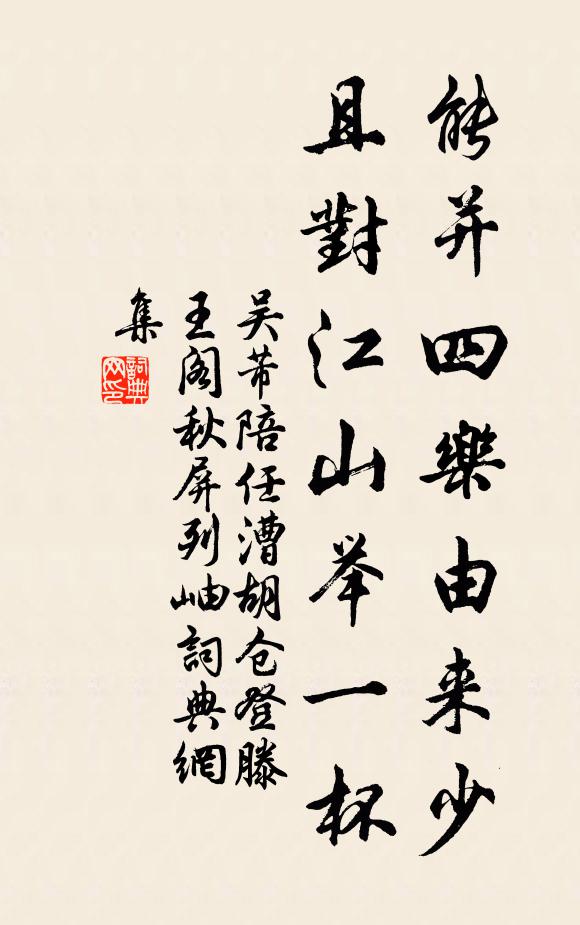 能并四樂由来少
且對江山举一杯
吴芾陪任漕胡仓登滕
王阁秋屏列岫詞典網
集
詞典
网印